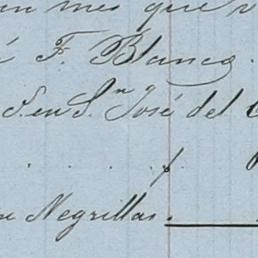 mes que
F. Blanco.
S. en Sn José del
Negrillas.